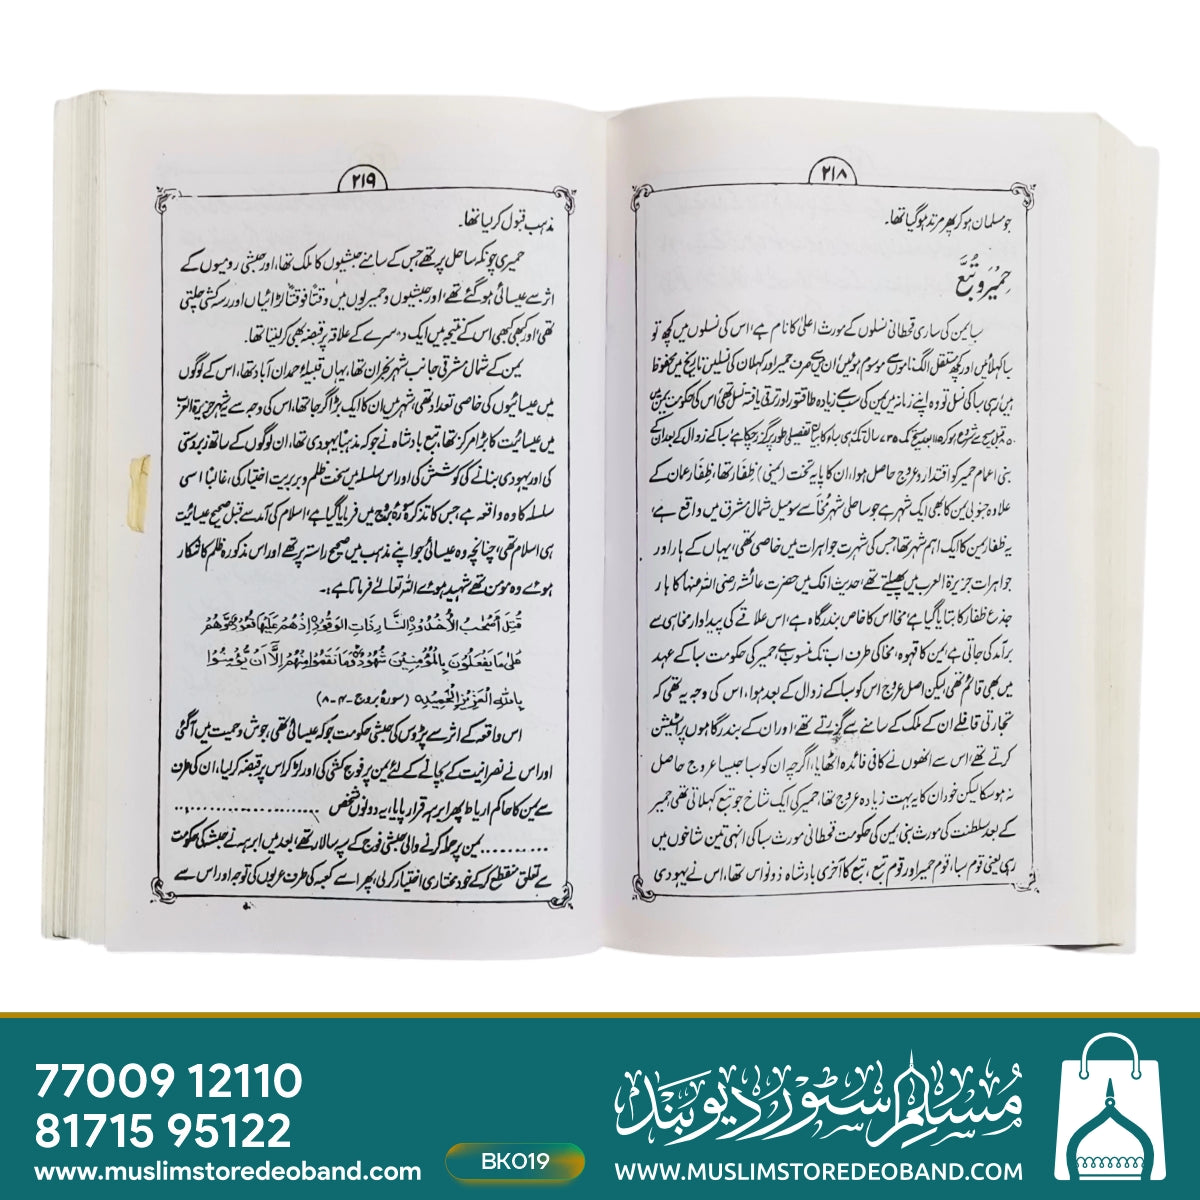 ۲۱۸
جو مسلمان ہو کر پھر مرتد ہو گیا تھا۔
حِمْیَر و تُبَّع
سبا یمن کی ساری قحطانی نسلوں کے مورث اعلیٰ کا نام ہے، اس کی نسلوں میں کچھ تو
سبا کہلائیں اور کچھ مستقل الگ ناموں سے موسوم ہوئیں ان میں سے صرف حمیر اور کہلان کی نسلیں تاریخ میں محفوظ
ہیں رہی سبا کی نسل تو وہ اپنے زمانہ میں یمن کی سب سے زیادہ طاقتور اور ترقی یافتہ نسل تھی اس کی حکومت یمن میں
قبل مسیح سے شروع ہو کر بعد مسیح تک سال تک رہی سبا کا بیان تفصیلی طور پر گزر چکا ہے سبا کے زوال کے بعد ان کے
بنی اعمام حمیر کو اقتدار و عروج حاصل ہوا، ان کا پایہ تخت (یمنی) ظِفار تھا، ظِفار عمان کے
علاوہ جنوبی یمن کا بھی ایک شہر ہے جو ساحلی شہر مُخا سے سو میل شمال مشرق میں واقع ہے،
یہ ظفار یمن کا ایک اہم شہر تھا جس کی شہرت جواہرات میں خاصی تھی، یہاں کے ہار اور
جواہرات جزیرۃ العرب میں پھیلتے تھے، حدیث افک میں حضرت عائشہ رضی اللہ عنہا کا ہار
جذع ظفار کا بتایا گیا ہے، مخا اس کا خاص بندرگاہ ہے، اس علاقے کی پیداوار مخا ہی سے
برآمد کی جاتی ہے، یمن کا قہوہ، مخا کی طرف اب تک منسوب ہے، حمیر کی حکومت سبا کے عہد
میں بھی قائم تھی، لیکن اصل عروج اس کو سبا کے زوال کے بعد ہوا، اس کی وجہ یہ تھی کہ
تجارتی قافلے ان کے ملک کے سامنے سے گزرتے تھے، اور ان کے بندرگاہوں پر اسٹیشن
کرتے تھے، اس سے انھوں نے کافی فائدہ اٹھایا، اگرچہ ان کو سبا جیسا عروج حاصل
نہ ہو سکا لیکن خود ان کا یہ بہت زیادہ عروج تھا، حمیر کی ایک شاخ جو تبع کہلاتی تھی حمیر
کے بعد سلطنت کی مورث بنی، یمن کی حکومت قحطانی مورث سبا کی انہی تین شاخوں میں
رہی یعنی قوم سبا، قوم حمیر اور قوم تبع، تبع کا آخری بادشاہ ذونواس تھا، اس نے یہودی
۲۱۹
مذہب قبول کر لیا تھا۔
حمیری چونکہ ساحل پر تھے جس کے سامنے حبشیوں کا ملک تھا، اور حبشی رومیوں کے
اثر سے عیسائی ہو گئے تھے، اور حبشیوں و حمیریوں میں وقتاً فوقتاً لڑائیاں اور رسہ کشی چلتی
تھی، اور کبھی کبھی اس کے نتیجہ میں ایک دوسرے کے علاقہ پر قبضہ بھی کر لیتا تھا۔
یمن کے شمال مشرقی جانب شہر نجران تھا، یہاں قبیلۂ حمدان آباد تھا، اس کے لوگوں
میں عیسائیوں کی خاصی تعداد تھی، شہر میں ان کا ایک بڑا گرجا تھا، اس کی وجہ سے یہ شہر جزیرۃ العرب
میں عیسائیت کا بڑا مرکز تھا، تبع بادشاہ نے جو کہ مذہباً یہودی تھا، ان لوگوں کے ساتھ زبردستی
کی اور یہودی بنانے کی کوشش کی اور اس سلسلہ میں سخت ظلم و بربریت اختیار کی، غالباً اسی
سلسلہ کا وہ واقعہ ہے جس کا تذکرہ سورۂ بروج میں فرمایا گیا ہے، اسلام کی آمد سے قبل صحیح عیسائیت
ہی اسلام تھی، چنانچہ وہ عیسائی جو اپنے مذہب میں صحیح راستہ پر تھے اور اس مذکورہ ظلم کا شکار
ہوئے وہ مومن تھے شہید ہوئے اللہ تعالےٰ فرماتا ہے:۔
قُتِلَ أَصْحٰبُ الْأُخْدُوْدِ النَّارِ ذَاتِ الْوَقُوْدِ إِذْ هُمْ عَلَيْهَا قُعُوْدٌ وَّهُمْ
عَلٰى مَا يَفْعَلُوْنَ بِالْمُؤْمِنِيْنَ شُهُوْدٌ وَمَا نَقَمُوْا مِنْهُمْ إِلَّا أَنْ يُّؤْمِنُوْا
بِاللهِ الْعَزِيْزِ الْحَمِيْدِ (سورۂ بروج ۔۴۔۸)
اس واقعہ کے اثر سے پڑوس کی حبشی حکومت جو کہ عیسائی تھی، جوش و حمیت میں آگئی
اور اس نے نصرانیت کے بچانے کے لئے یمن پر فوج کشی کی اور لڑ کر اس پر قبضہ کر لیا، ان کی طرف
سے یمن کا حاکم ارباط پھر ابرہہ قرار پایا، یہ دونوں شخص ..................
.......... یمن پر حملہ کرنے والی حبشی فوج کے سپہ سالار تھے، بعد میں ابرہہ نے حبشہ کی حکومت
سے تعلق منقطع کر کے خود مختاری اختیار کر لی، پھر اسے کعبہ کی طرف عربوں کی توجہ اور اس سے
77009 12110
81715 95122
www.muslimstoredeoband.com
BK019
مُسلم سٹور دیوبند
WWW.MUSLIMSTOREDEOBAND.COM